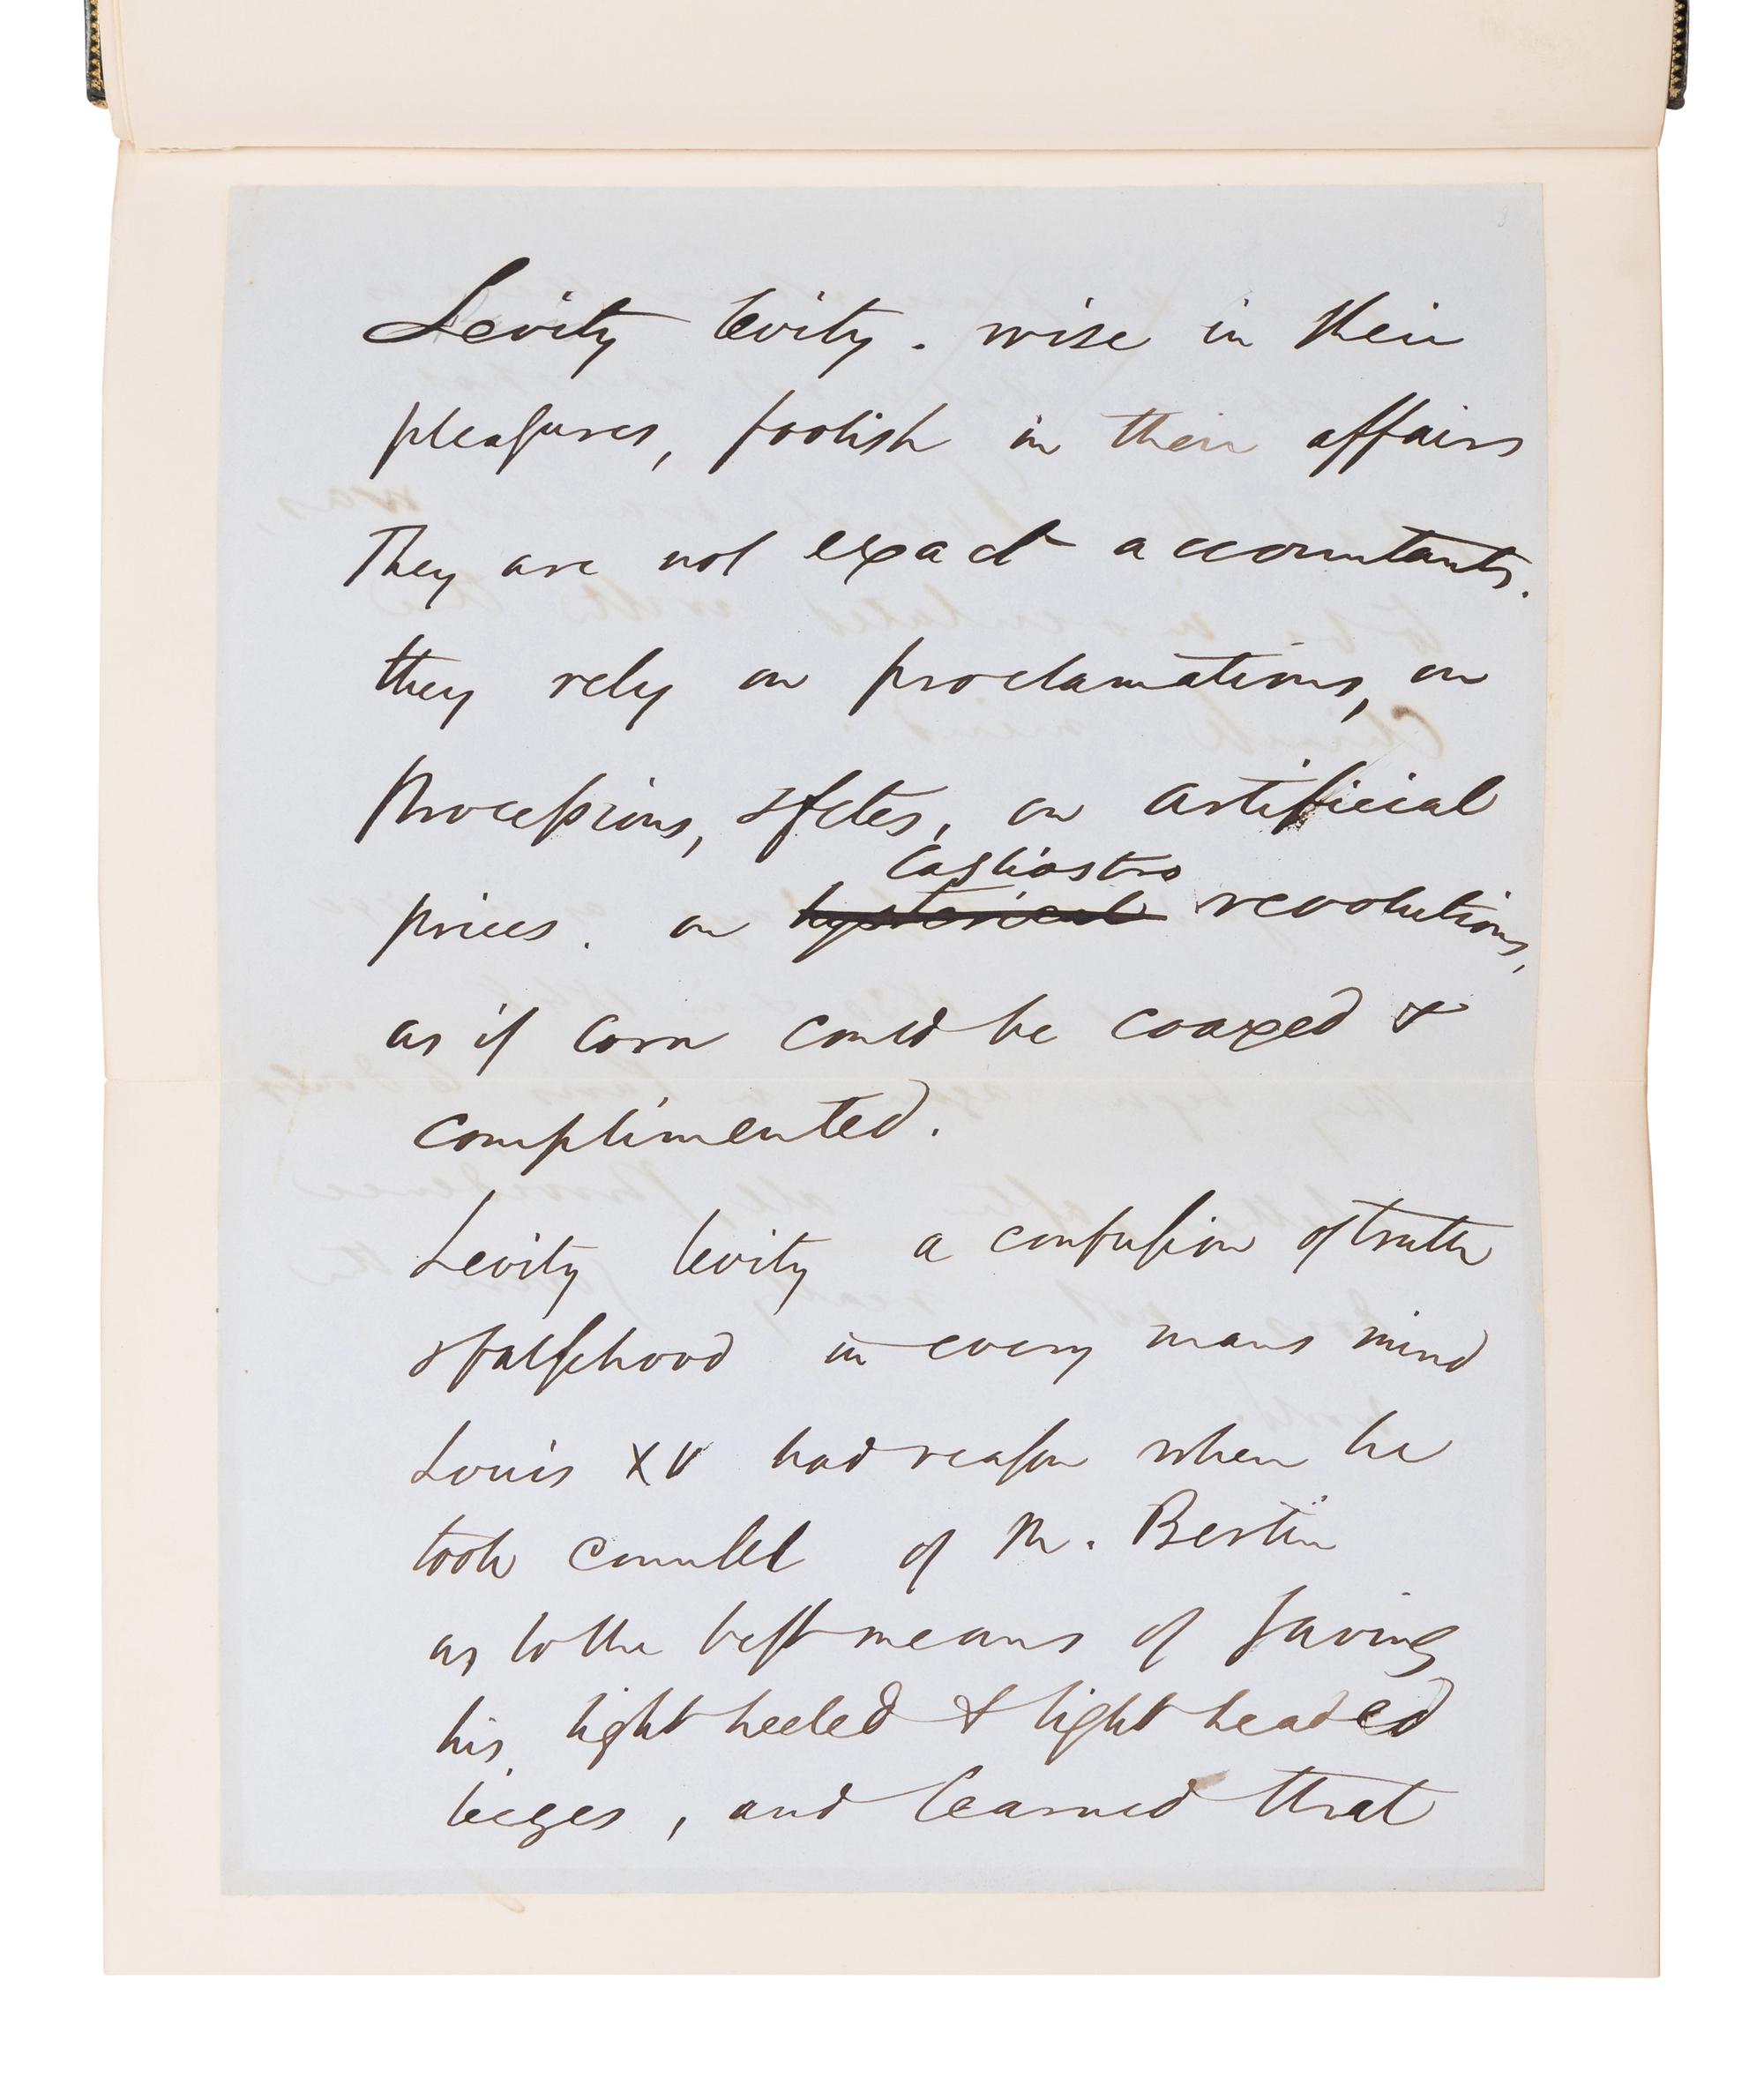 Levity levity. wise in their
pleasures, foolish in their affairs
They are not exact accountants.
they rely on proclamations, on
processions, & fetes, on artificial
Cagliostro
prices. on hysterical revolutions,
as if corn could be coaxed &
complimented.
Levity levity a confusion of truth
& falsehood in every mans mind
Louis XV had reason when he
took counsel of M. Bertin
as to the best means of saving
his light heeled & light headed
lieges, and learned that